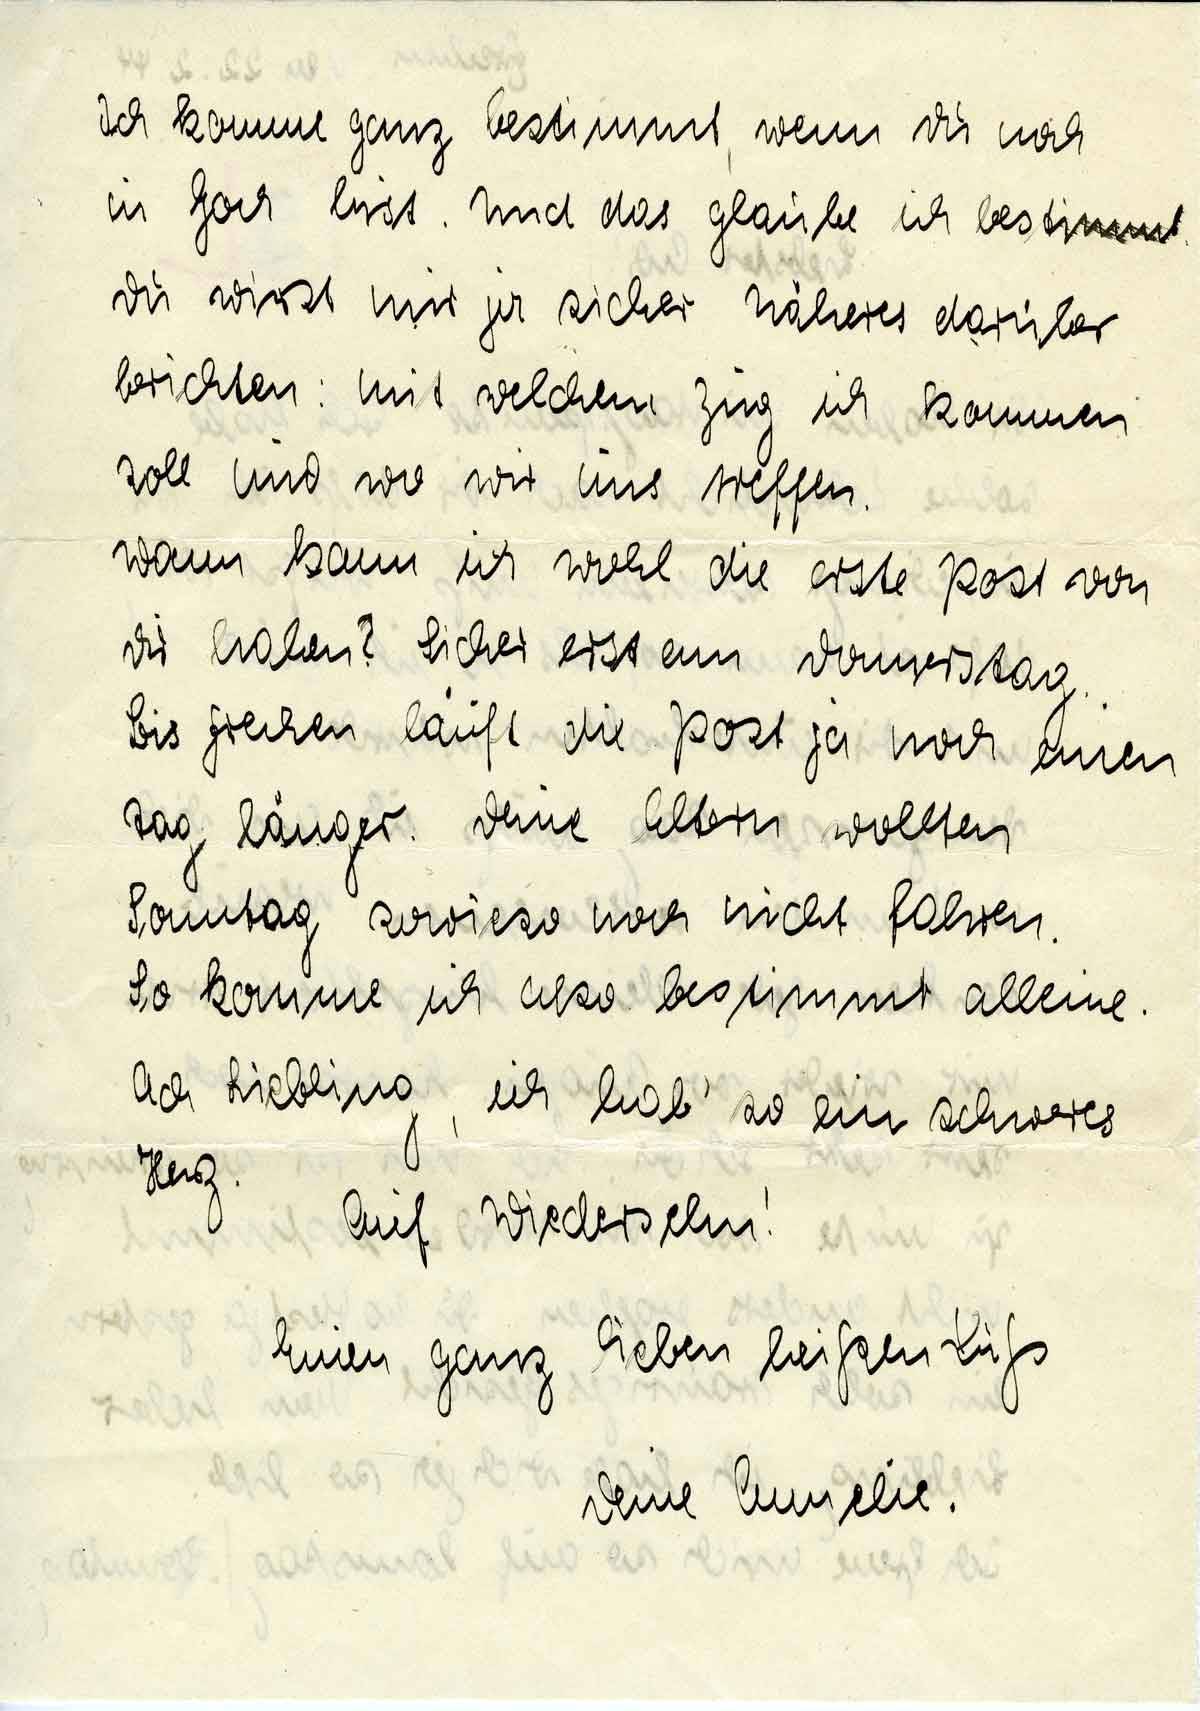 Ich komme ganz bestimmt, wenn Du noch
in Goch bist. Und das glaube ich bestimmt.
Du wirst mir ja sicher Näheres darüber
berichten: mit welchem Zug ich kommen
soll und wo wir uns treffen.
Wann kann ich wohl die erste Post von
Dir haben? Sicher erst am Donnerstag.
Bis Frechen läuft die Post ja noch einen
Tag länger. Deine Eltern wollten
Sonntag sowieso noch nicht fahren.
So komme ich also bestimmt alleine.
Ach Liebling, ich hab' so ein schweres
Herz.
Auf Wiedersehn!
Einen ganz lieben heißen Kuß
Deine Annelie.